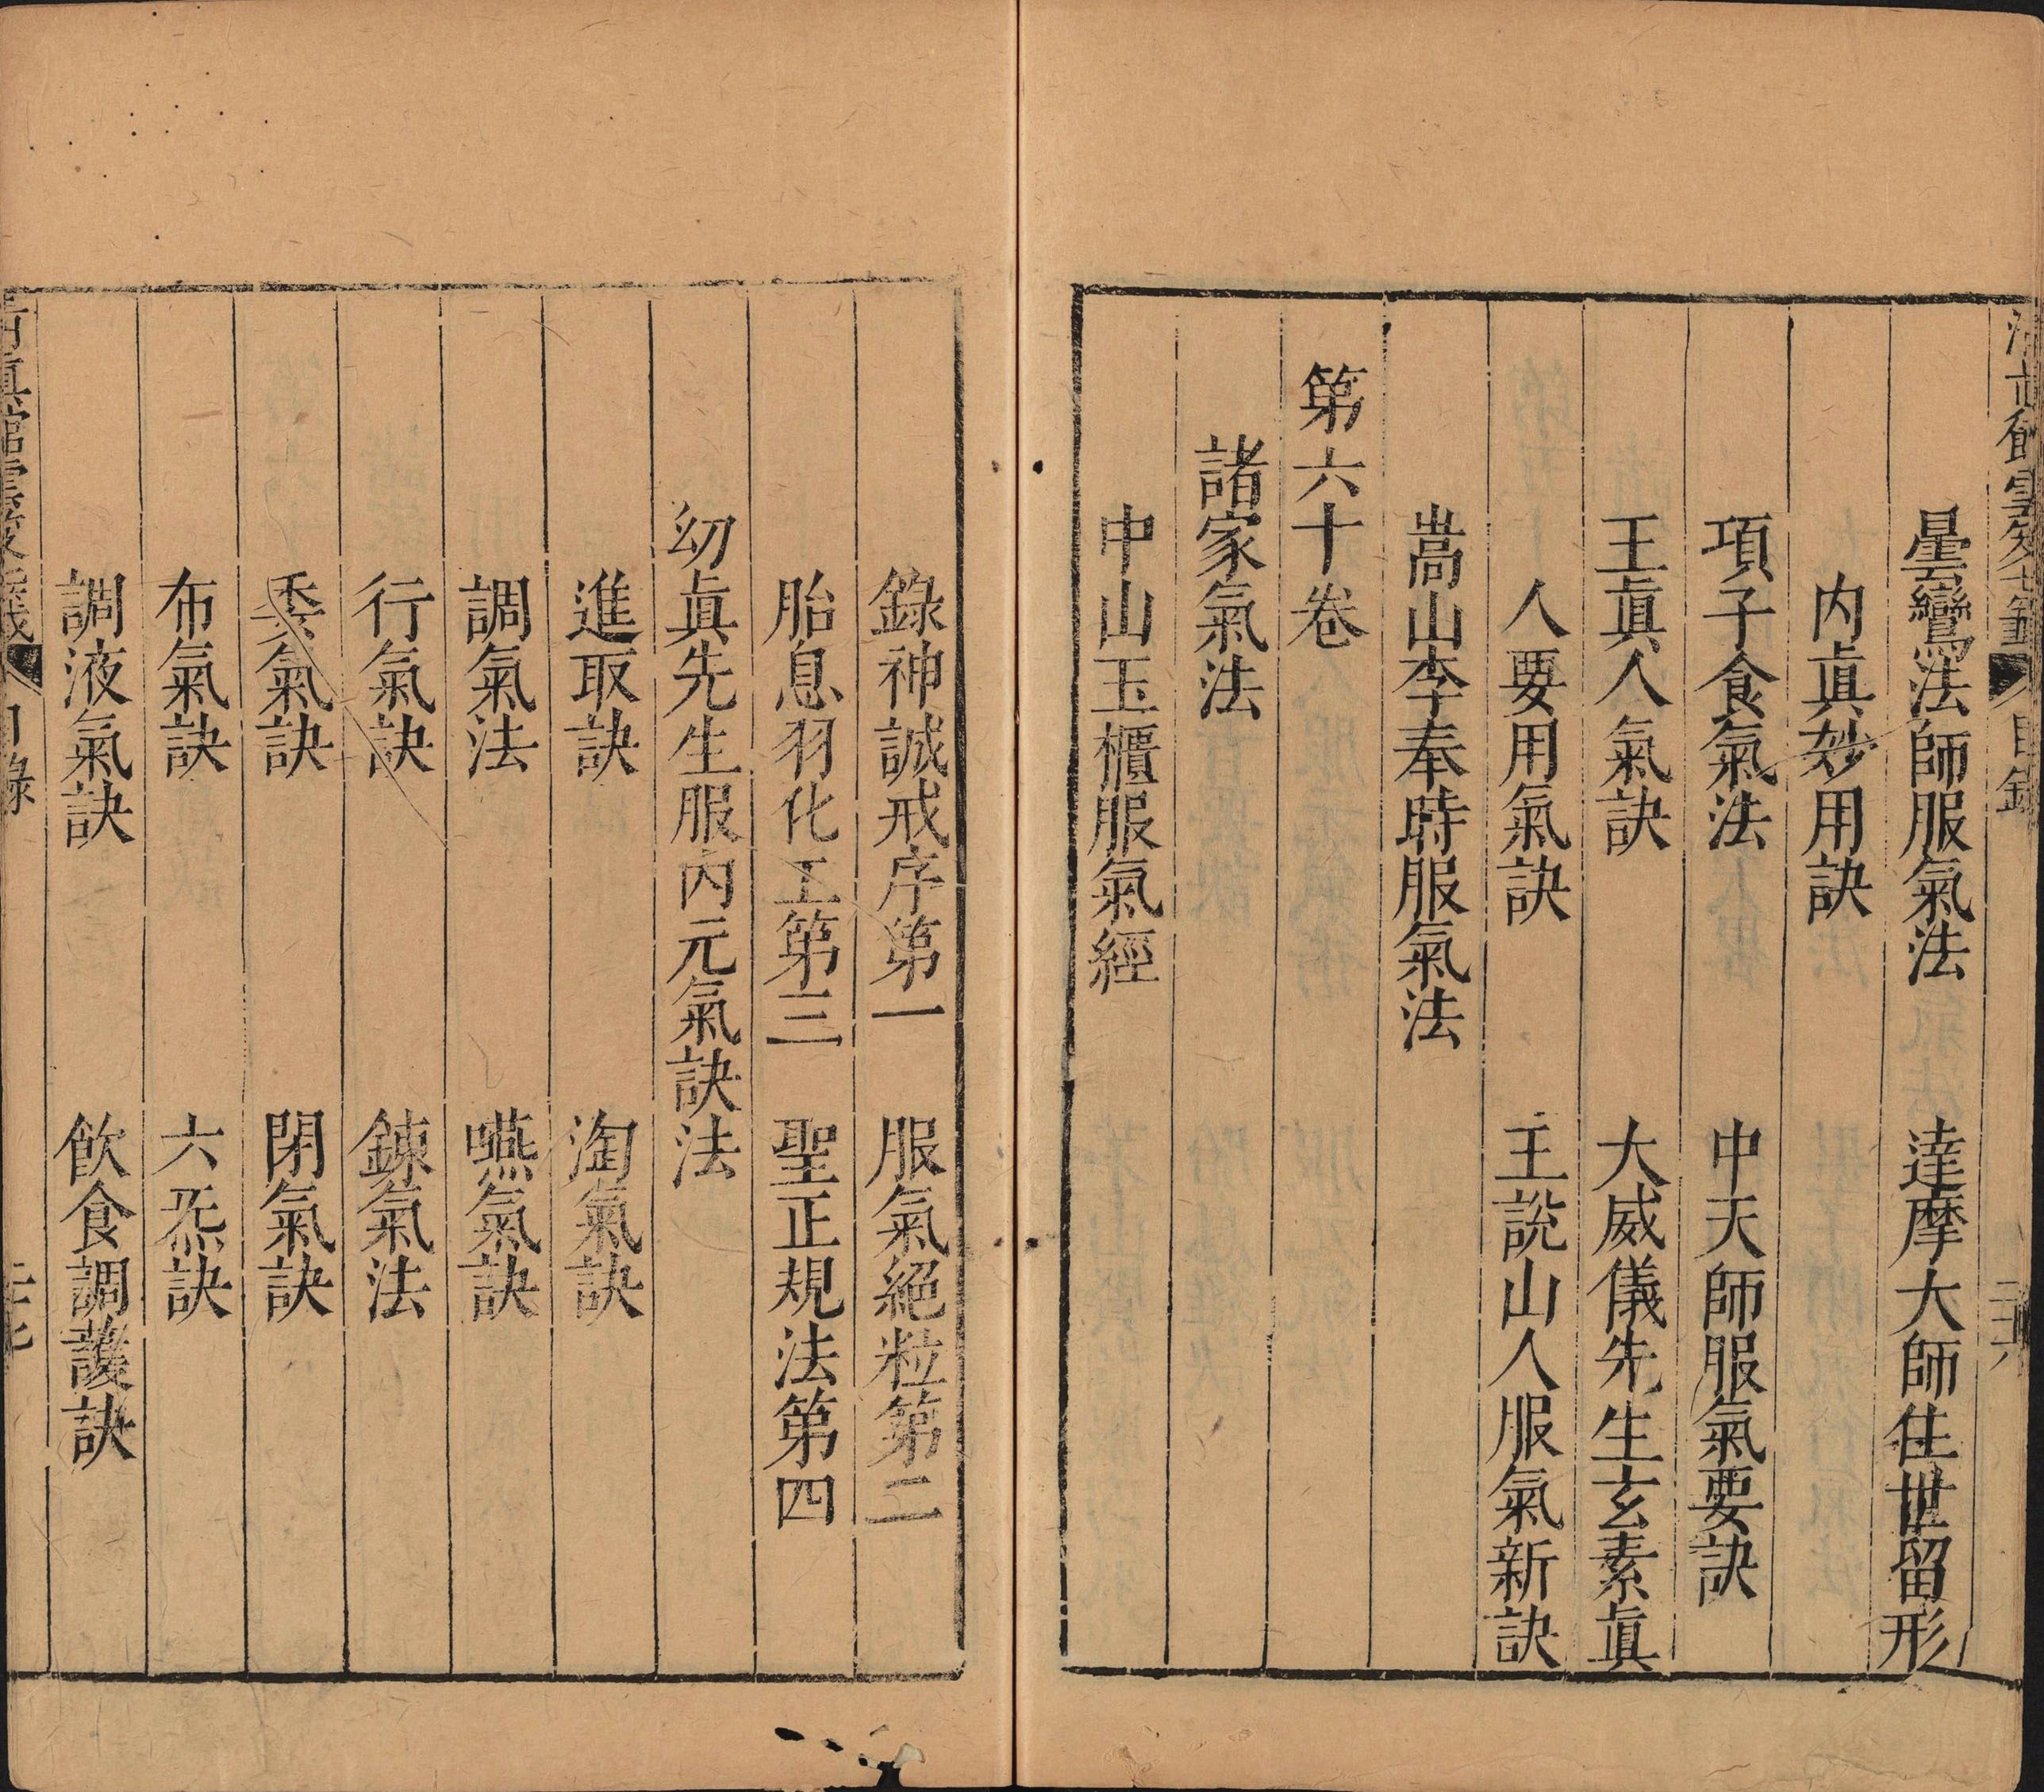 曇鸞法師服氣法　達摩大師住世留形
内眞妙用訣
項子食氣法　中天師服氣要訣
王眞人氣訣　大威儀先生玄素眞
人要用氣訣　王說山人服氣新訣
嵩山李奉時服氣法
第六十卷
諸家氣法
中山玉櫃服氣經
錄神誠戒序第一　服氣絕粒第二
胎息羽化工第三　聖正規法第四
幻眞先生服内元氣訣法
進取訣　淘氣訣
調氣法　嚥氣訣
行氣訣　鍊氣法
委氣訣　閉氣訣
布氣訣　六炁訣
調液氣訣　飲食調護訣
目錄